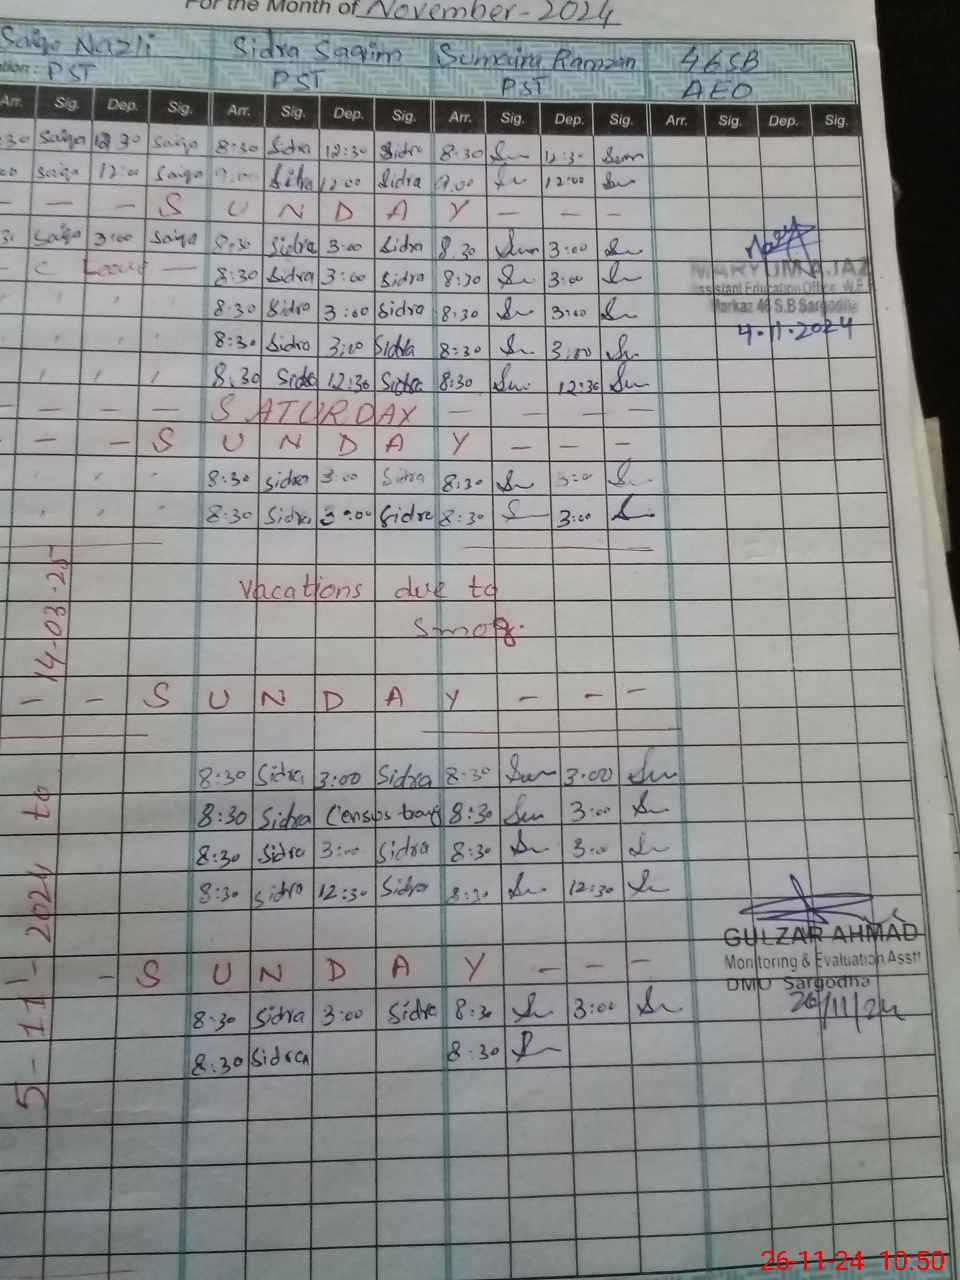 For the Month of November-2024
Saiqa Nazli Sidra Saqim Sumaira Ramzan 46SB
PST PST PST AEO
Arr. Sig. Dep. Sig. Arr. Sig. Dep. Sig. Arr. Sig. Dep. Sig. Arr. Sig. Dep. Sig.
:30 Saiqa 12 30 Saiqa 8:30 Sidra 12:30 Sidra 8:30 12:30
Saiqa 12:00 Saiqa Sidra 12:00 Sidra 9.00 12:00
— — — S U N D A Y — — —
Saiqa 3:00 Saiqa 8:30 Sidra 3:00 Sidra 8.30 3:00
— C Leave — 8:30 Sidra 3:00 Sidra 8:30 3:00
8:30 Sidra 3:00 Sidra 8:30 3:00
8:30 Sidra 3:00 Sidra 8:30 3:00
8.30 Sidra 12:30 Sidra 8:30 12:30
— — — — SATURDAY — — — —
— — — S U N D A Y — — —
8:30 Sidra 3:00 Sidra 8:30 3:00
8:30 Sidra 3:00 Sidra 8:30 3:00
vacations due to
smog.
— — S U N D A Y — — —
8:30 Sidra 3:00 Sidra 8:30 3:00
8:30 Sidra 8:30 3:00
8:30 Sidra 3:00 Sidra 8:30 3:00
8:30 Sidra 12:30 Sidra 8:30 12:30
— S U N D A Y — — —
8:30 Sidra 3:00 Sidra 8:30 3:00
8:30 Sidra 8:30
5-11-2024 to 14-03-25
MARYUM AJAZ
Assistant Education Officer
Markaz 46 S.B Sargodha
4.11.2024
GULZAR AHMAD
Monitoring & Evaluation Asstt
DMO Sargodha
26/11/24
26-11-24 10:50